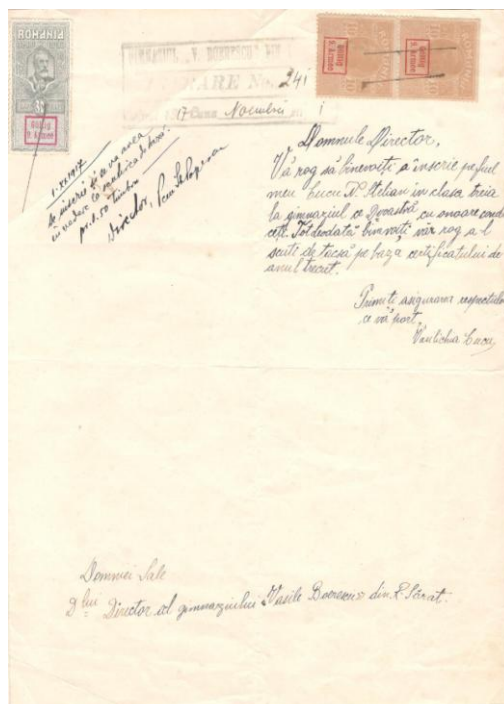 ROMANIA
GIMNAZIUL „V. BOERESCU" DIN
No. 241
1917 Luna Noembrie
1.XI.1917
Se înscrie și a va avea
in vedere la
pt. 1.50 timbru
Director,
Domnule Director,
Vă rog să binevoiți, a înscrie pe fiul
meu Lucu N. Stelian in clasa treia
la gimnaziul ce Dvoastră cu onoare cond
ceti. Totdeodată binvoiți văr rog a-l
scuti de tacsă pe baza certificatului de
anul trecut.
Primiți asigurarea respectului
ce vă port,
Lucu
Domniei Sale
Dlui Director al gimnaziului Vasile Boerescu din R. Sărat.